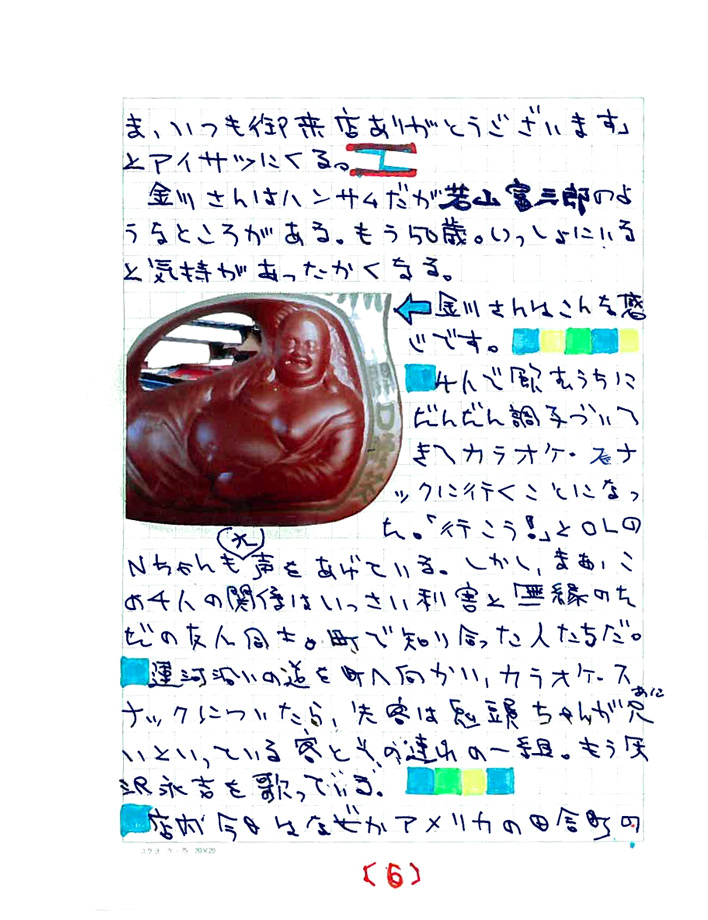 ま、いつも御来店ありがとうございます」
とアイサツにくる。
金川さんはハンサムだが若山富三郎のよ
うなところがある。もう50歳。いっしょにいる
と気持があったかくなる。
金川さんはこんな感
じです。
4人で飲むうちに
だんだん調子づいて
きてカラオケ・スナ
ックに行くことになっ
た。「行こう!」とOLの
Nちゃんも声をあげている。しかし、まあ、こ
の4人の関係はいっさい利害と無縁のた
だの友人同士。町で知り合った人たちだ。
運河沿いの道を町へ向かい、カラオケ・ス
ナックについたら、先客は鬼頭ちゃんが兄
あに
いといっている客とその連れの一組。もう矢
沢永吉を歌っている。
店が今日はなぜかアメリカの田舎町の
コクヨ ケ-75 20×20
(6)